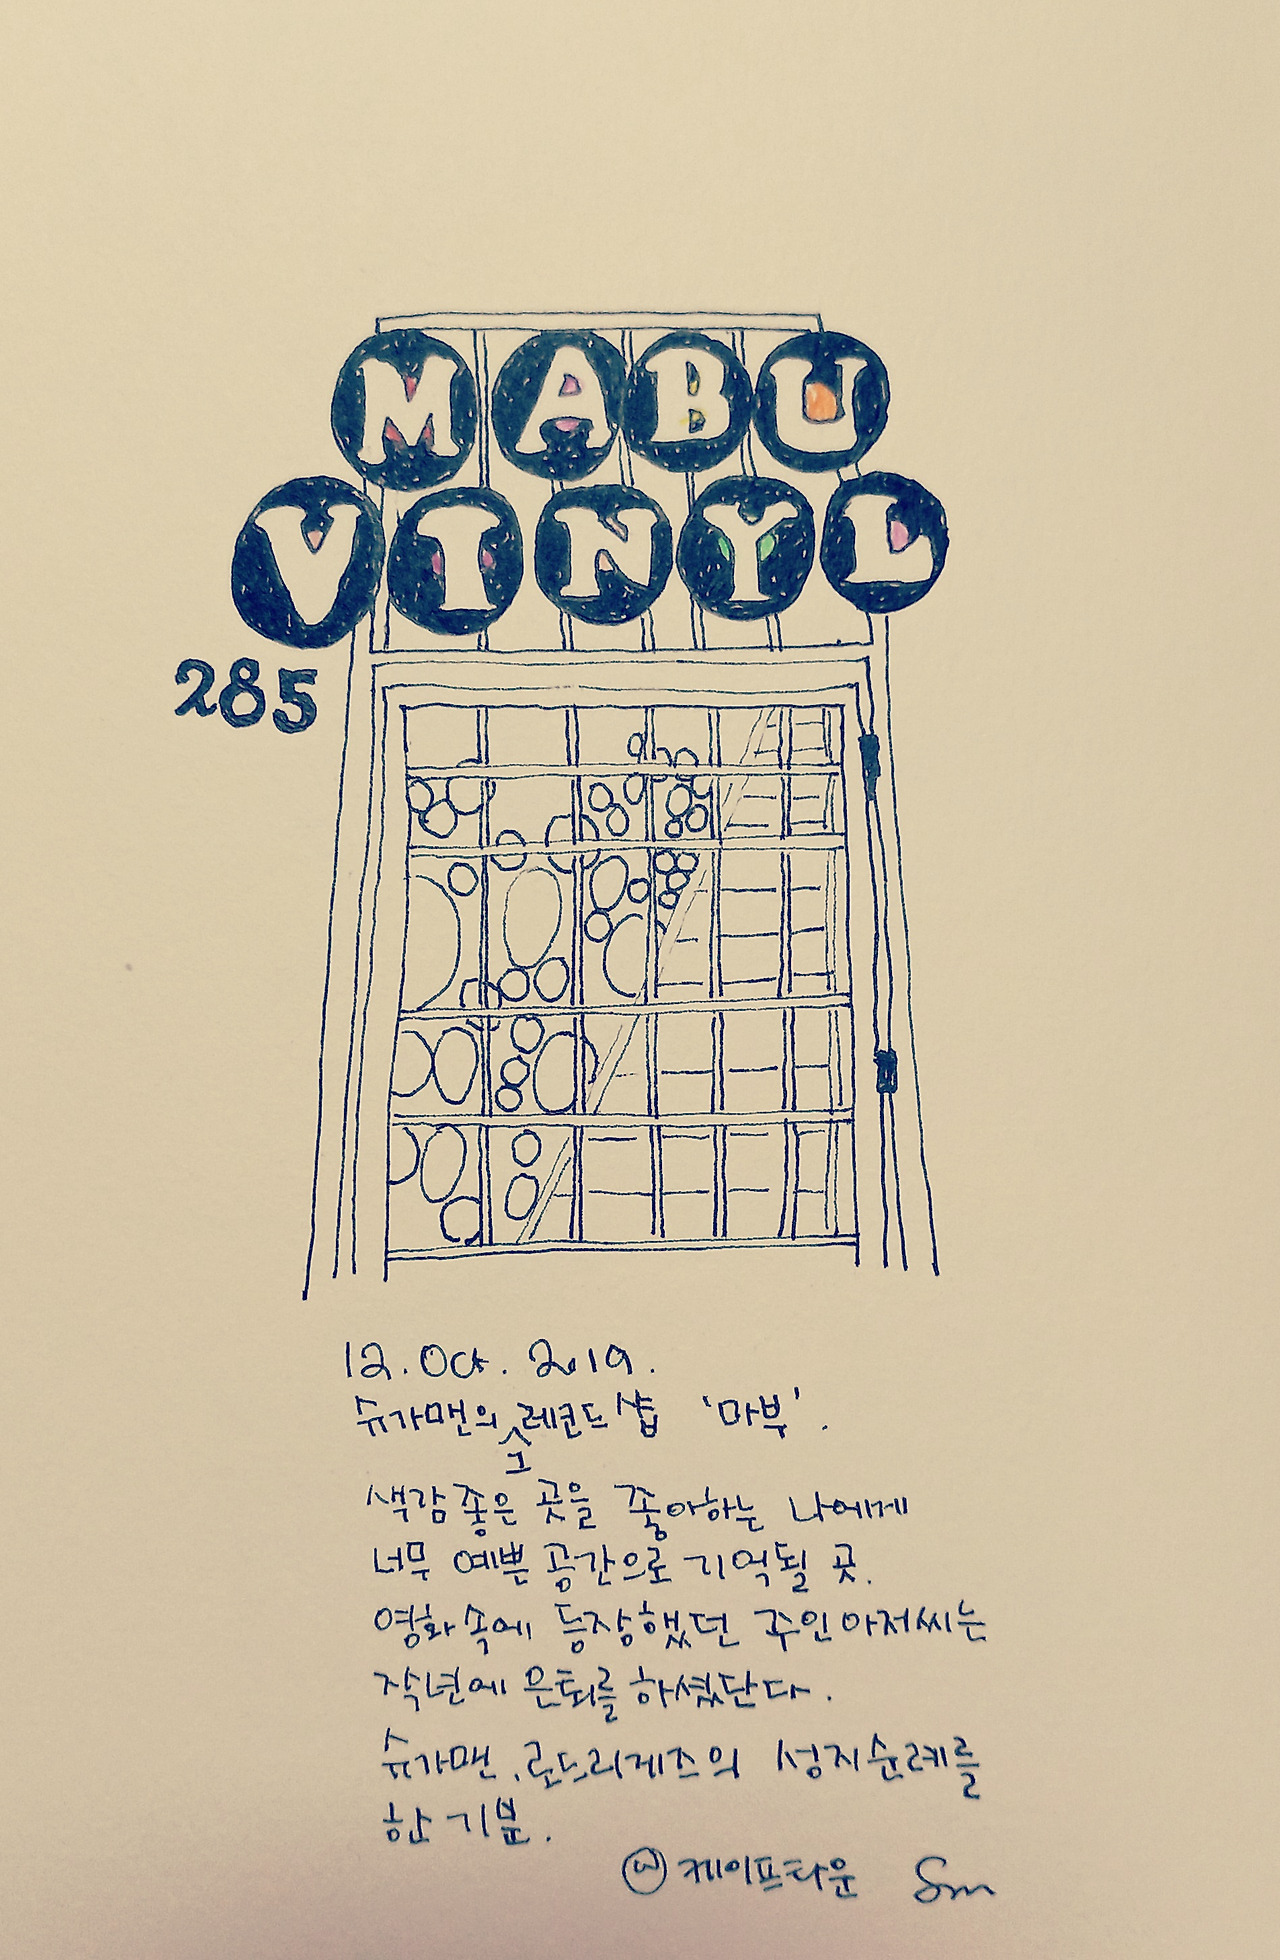 MABU
VINYL
285
12. Oct. 2019.
슈가맨의 그 레코드 샵 '마부'.
색감 좋은 곳을 좋아하는 나에게
너무 예쁜 공간으로 기억될 곳.
영화 속에 등장했던 주인아저씨는
작년에 은퇴를 하셨단다.
슈가맨, 로드리게즈의 성지순례를
한 기분.
케이프타운 Sm